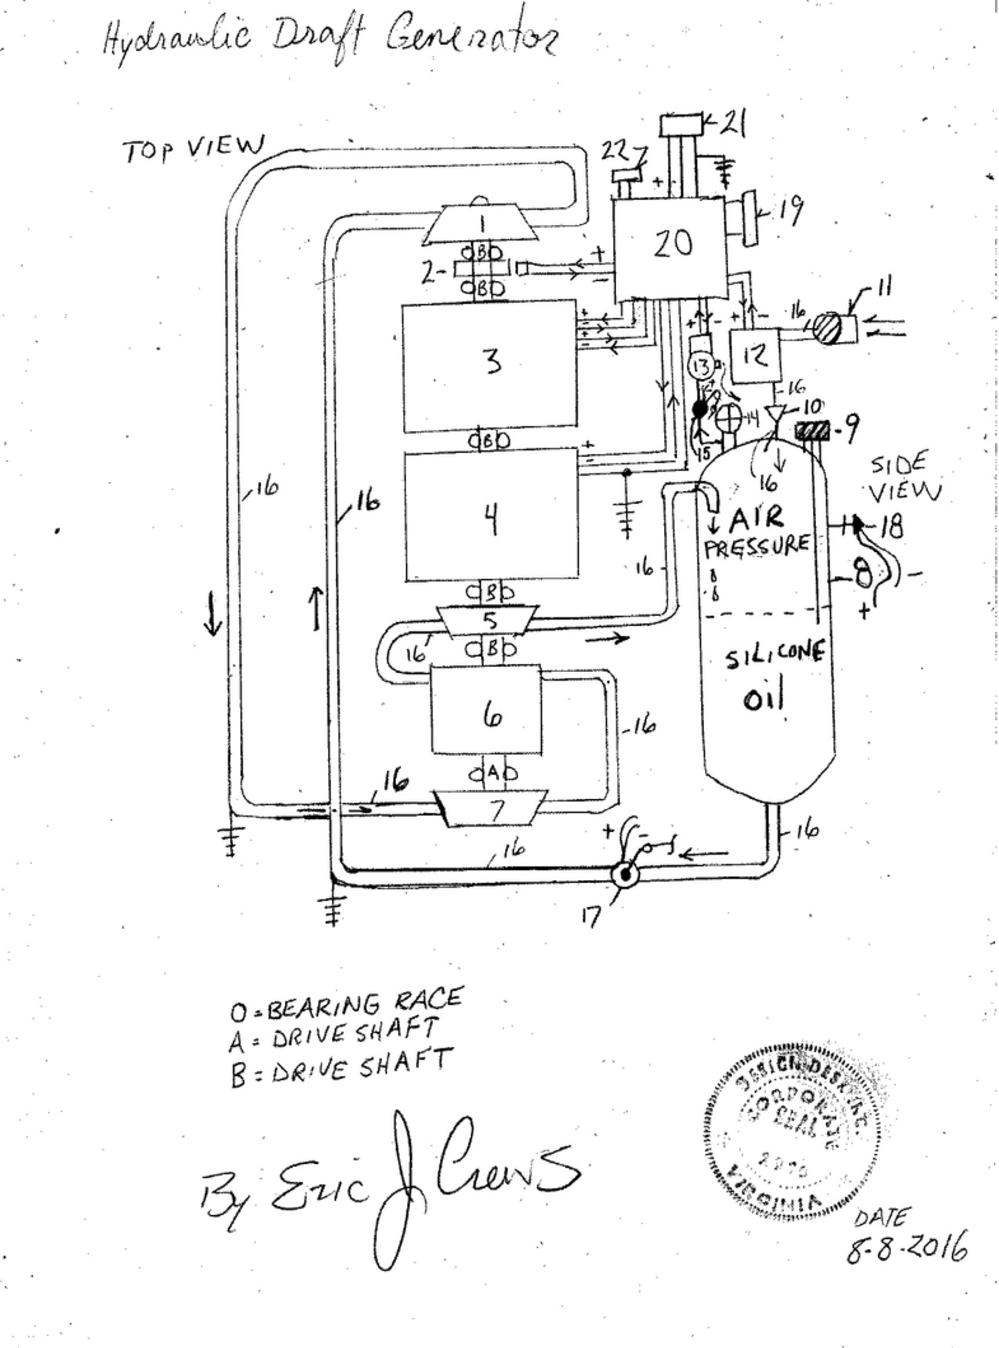 Hydraulic Draft Generator
TOP VIEW
21
22
+
19
20
1
B
2-
+
-
B
11
16
+ -
+ -
12
3
+
-
+
-
13
16
10
-9
14
B
+
-
15
16
SIDE
VIEW
16
16
4
AIR
PRESSURE
18
16
8
-
+
B
5
16
B
SILICONE
Oil
6
16
A
16
7
+ -
16
16
17
O = BEARING RACE
A = DRIVE SHAFT
B = DRIVE SHAFT
By Eric J Crews
DESIGN DESK, INC.
CORPORATE
SEAL
VIRGINIA
DATE
8-8-2016